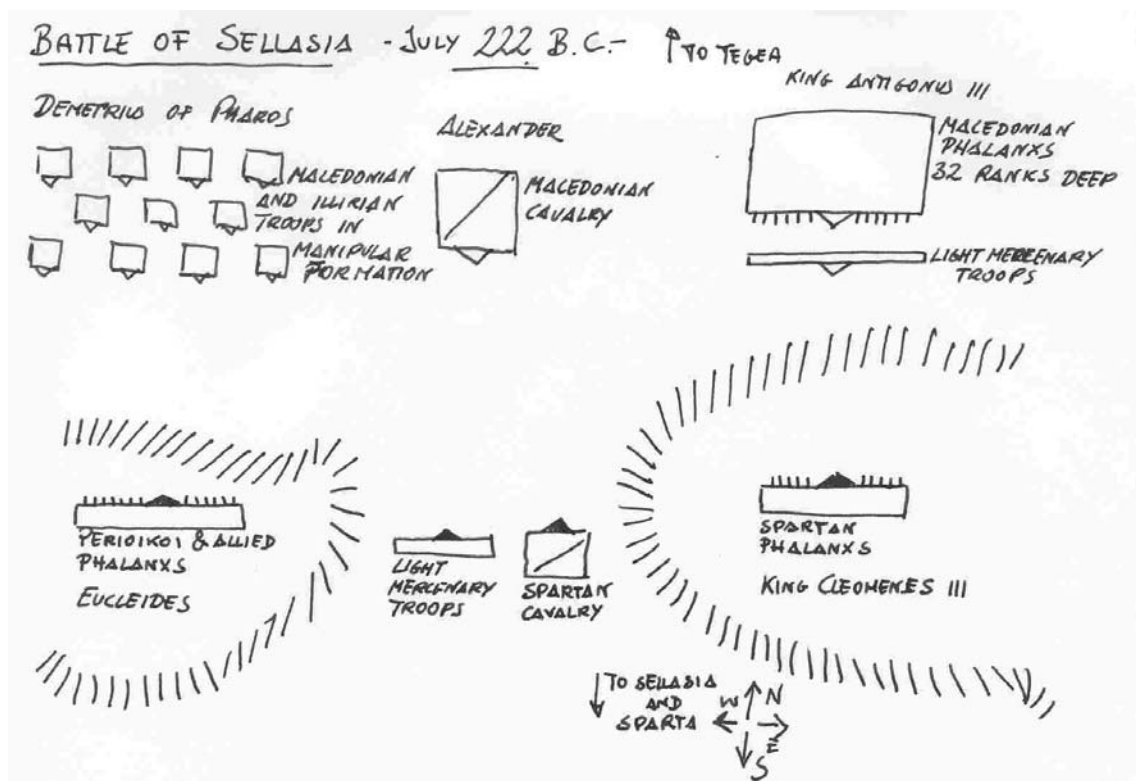 BATTLE OF SELLASIA - JULY 222 B.C.-
↑ TO TEGEA
KING ANTIGONUS III
DEMETRIUS OF PHAROS
ALEXANDER
MACEDONIAN
AND ILLIRIAN
TROOPS IN
MANIPULAR
FORMATION
MACEDONIAN
CAVALRY
MACEDONIAN
PHALANXS
32 RANKS DEEP
LIGHT MERCENARY
TROOPS
PERIOIKOI & ALLIED
PHALANXS
EUCLEIDES
LIGHT
MERCENARY
TROOPS
SPARTAN
CAVALRY
SPARTAN
PHALANXS
KING CLEOMENES III
↓ TO SELLASIA
AND
SPARTA
W N
E
S